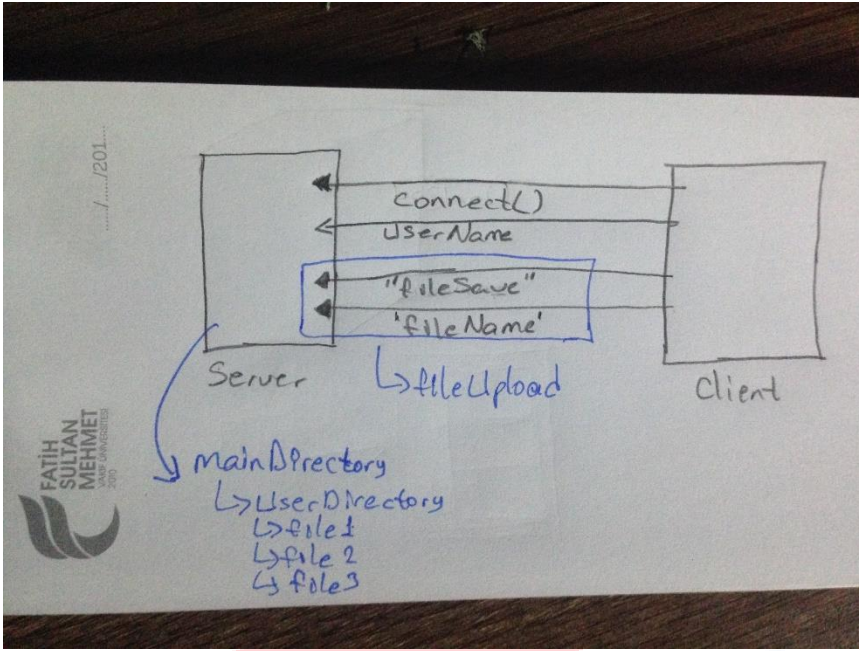 ...../...../201....
connect()
userName
"fileSave"
'fileName'
Server
fileUpload
Client
mainDirectory
userDirectory
file1
file 2
file3
FATİH
SULTAN
MEHMET
VAKIF ÜNİVERSİTESİ
2010